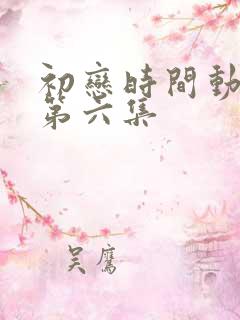 初戀時間動
第六集
吴鷹